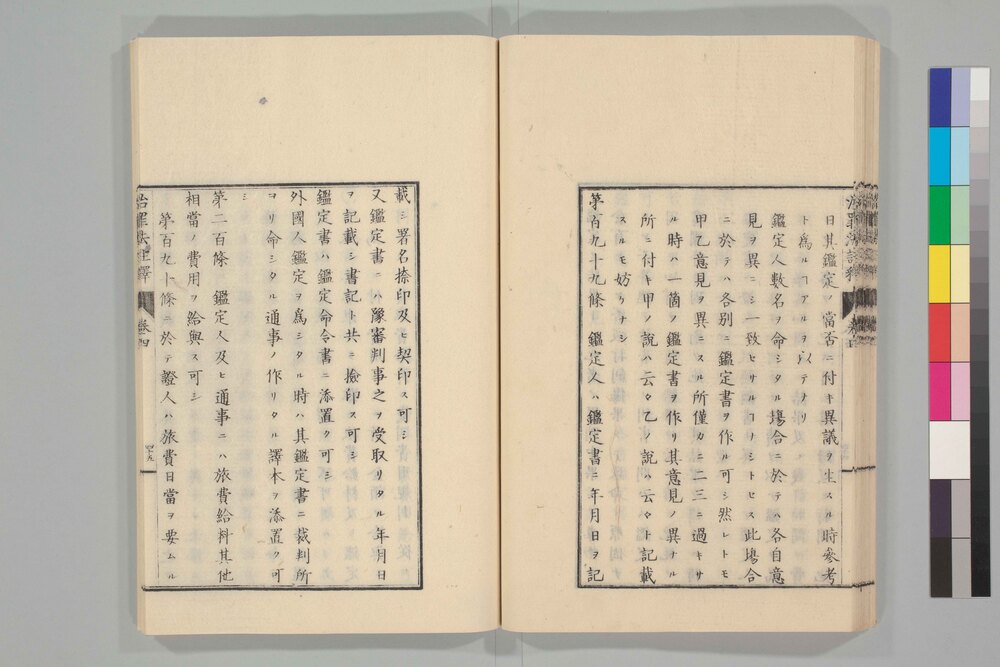 日其鑑定ノ當否ニ付キ異議ヲ生スル時參考
ト爲ルヿアルヲ以テナリ
鑑定人數名ヲ命シタル塲合ニ於テハ各自意
見ヲ異ニシ一致セサルヿナシトセス此塲合
ニ於テハ各別ニ鑑定書ヲ作ル可シ然レトモ
甲乙意見ヲ異ニスル所僅カニ二三ニ過キサ
ル時ハ一箇ノ鑑定書ヲ作リ其意見ノ異ナル
所ニ付キ甲ノ說ハ云々乙ノ說ハ云々ト記載
スルモ妨ケナシ
第百九十九條 鑑定人ハ鑑定書ニ年月日ヲ記
載シ署名捺印及ヒ契印ス可シ
又鑑定書ニハ豫審判事之ヲ受取リタル年月日
ヲ記載シ書記ト共ニ撿印ス可シ
鑑定書ハ鑑定命令書ニ添置ク可シ
外國人鑑定ヲ爲シタル時ハ其鑑定書ニ裁判所
ヨリ命シタル通事ノ作リタル譯本ヲ添置ク可
シ
第二百條 鑑定人及ヒ通事ニハ旅費給料其他
相當ノ費用ヲ給與ス可シ
第百九十條ニ於テ證人ハ旅費日當ヲ要ムル
治罪法註釋 卷四 四十五